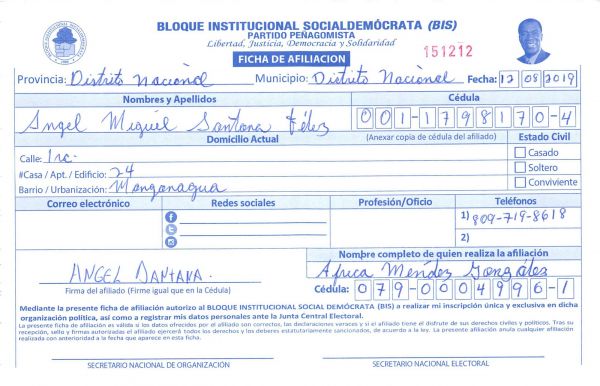 BLOQUE INSTITUCIONAL SOCIALDEMÓCRATA (BIS)
PARTIDO PEÑAGOMISTA
Libertad, Justicia, Democracia y Solidaridad
FICHA DE AFILIACION
151212
Provincia: Distrito Nacional Municipio: Distrito Nacional Fecha: 12 08 2019
Nombres y Apellidos Cédula
Angel Miguel Santana Féliz 001-1798170-4
Domicilio Actual (Anexar copia de cédula del afiliado) Estado Civil
Calle: 1ra. Casado
#Casa / Apt. / Edificio: 24 Soltero
Barrio / Urbanización: Manganagua Conviviente
Correo electrónico Redes sociales Profesión/Oficio Teléfonos
1) 809-719-8618
2)
Nombre completo de quien realiza la afiliación
ANGEL SANTANA. Africa Mendez González
Firma del afiliado (Firme igual que en la Cédula) Cédula: 079-0004996-1
Mediante la presente ficha de afiliación autorizo al BLOQUE INSTITUCIONAL SOCIAL DEMÓCRATA (BIS) a realizar mi inscripción única y exclusiva en dicha
organización política, así como a registrar mis datos personales ante la Junta Central Electoral.
La presente ficha de afiliación es válida si los datos ofrecidos por el afiliado son correctos, las declaraciones veraces y si el afiliado tiene el disfrute de sus derechos civiles y políticos. Tras su
recepción, sello y firmas autorizadas el afiliado ejercerá todos los derechos y los deberes estatutariamente sancionados, de acuerdo a la ley. La presente afiliación anula cualquier afiliación
realizada con anterioridad a la fecha que aparece en esta ficha.
SECRETARIO NACIONAL DE ORGANIZACIÓN SECRETARIO NACIONAL ELECTORAL